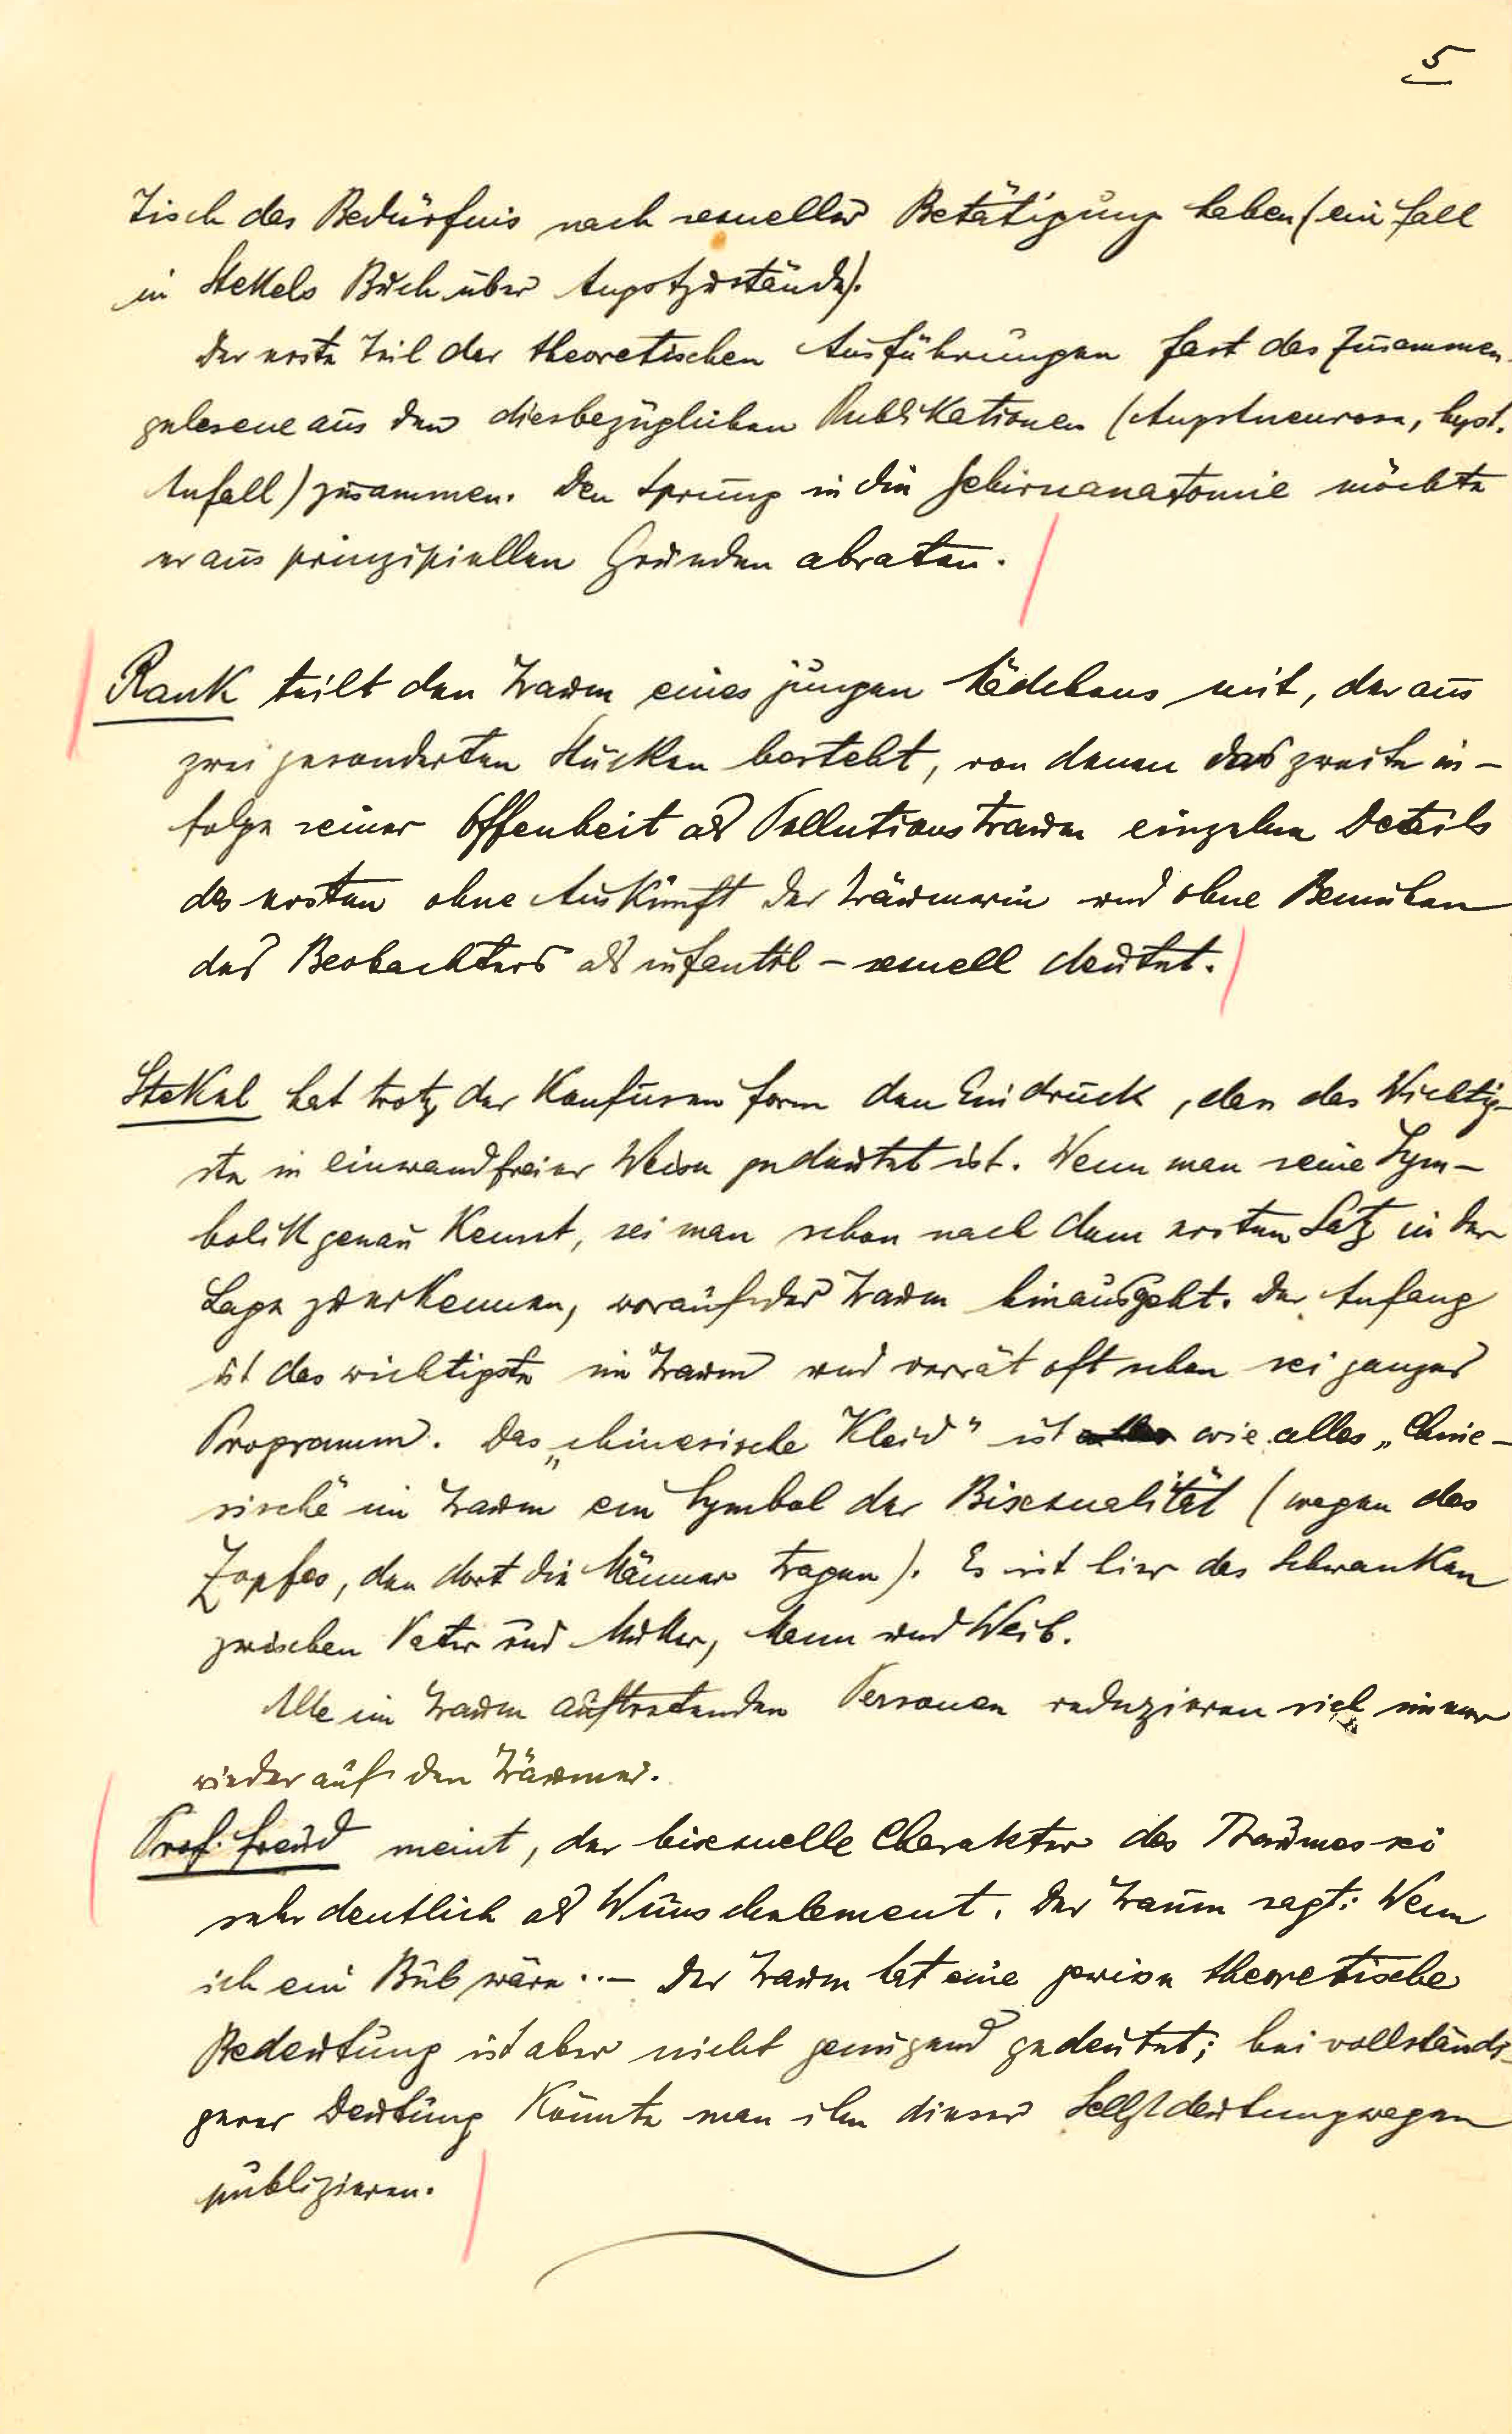 5
tisch das Bedürfnis nach sexueller Betätigung haben (ein Fall
in Stekels Buch über Angstzustände).
Der erste Teil der theoretischen Ausführungen fast das Zusammen-
gelesene aus den diesbezüglichen Publikationen (Angstneurose, hyst.
Anfall) zusammen. Den Sprung in die Gehirnanatomie möchte
er aus prinzipiellen Gründen abraten.
Rank teilt den Traum eines jungen Mädchens mit, der aus
zwei gesonderten Stücken besteht, von denen das zweite in-
folge seiner Offenheit als Pollutionstraum einzelne Details
des ersten ohne Auskunft der Träumerin und ohne Bemühen
des Beobachters als infantil-sexuell deutet.
Stekel hat trotz der konfusen Form den Eindruck, dass das Wichtig-
ste in einwandfreier Weise gedeutet ist. Wenn man seine Sym-
bolik genau kennt, sei man schon nach dem ersten Satz in der
Lage zu erkennen, worauf der Traum hinausgeht. Der Anfang
ist das wichtigste im Traum und verrät oft schon sei ganzes
Programm. Das „chinesische Kleid" ist wie alles „Chine-
sische" im Traum ein Symbol der Bisexualität (wegen des
Zopfes, den dort die Männer tragen). Es ist hier das Schwanken
zwischen Vater und Mutter, Mann und Weib.
Alle im Traum auftretenden Personen reduzieren sich immer
wieder auf den Träumer.
Prof. Freud meint, der bisexuelle Charakter des Traumes sei
sehr deutlich als Wunschelement. Der Traum sagt: Wenn
ich ein Bub wäre..- Der Traum hat eine gewisse theoretische
Bedeutung ist aber nicht genügend gedeutet; bei vollständi-
gerer Deutung könnte man ihn dieser Selbstdeutung wegen
publizieren.